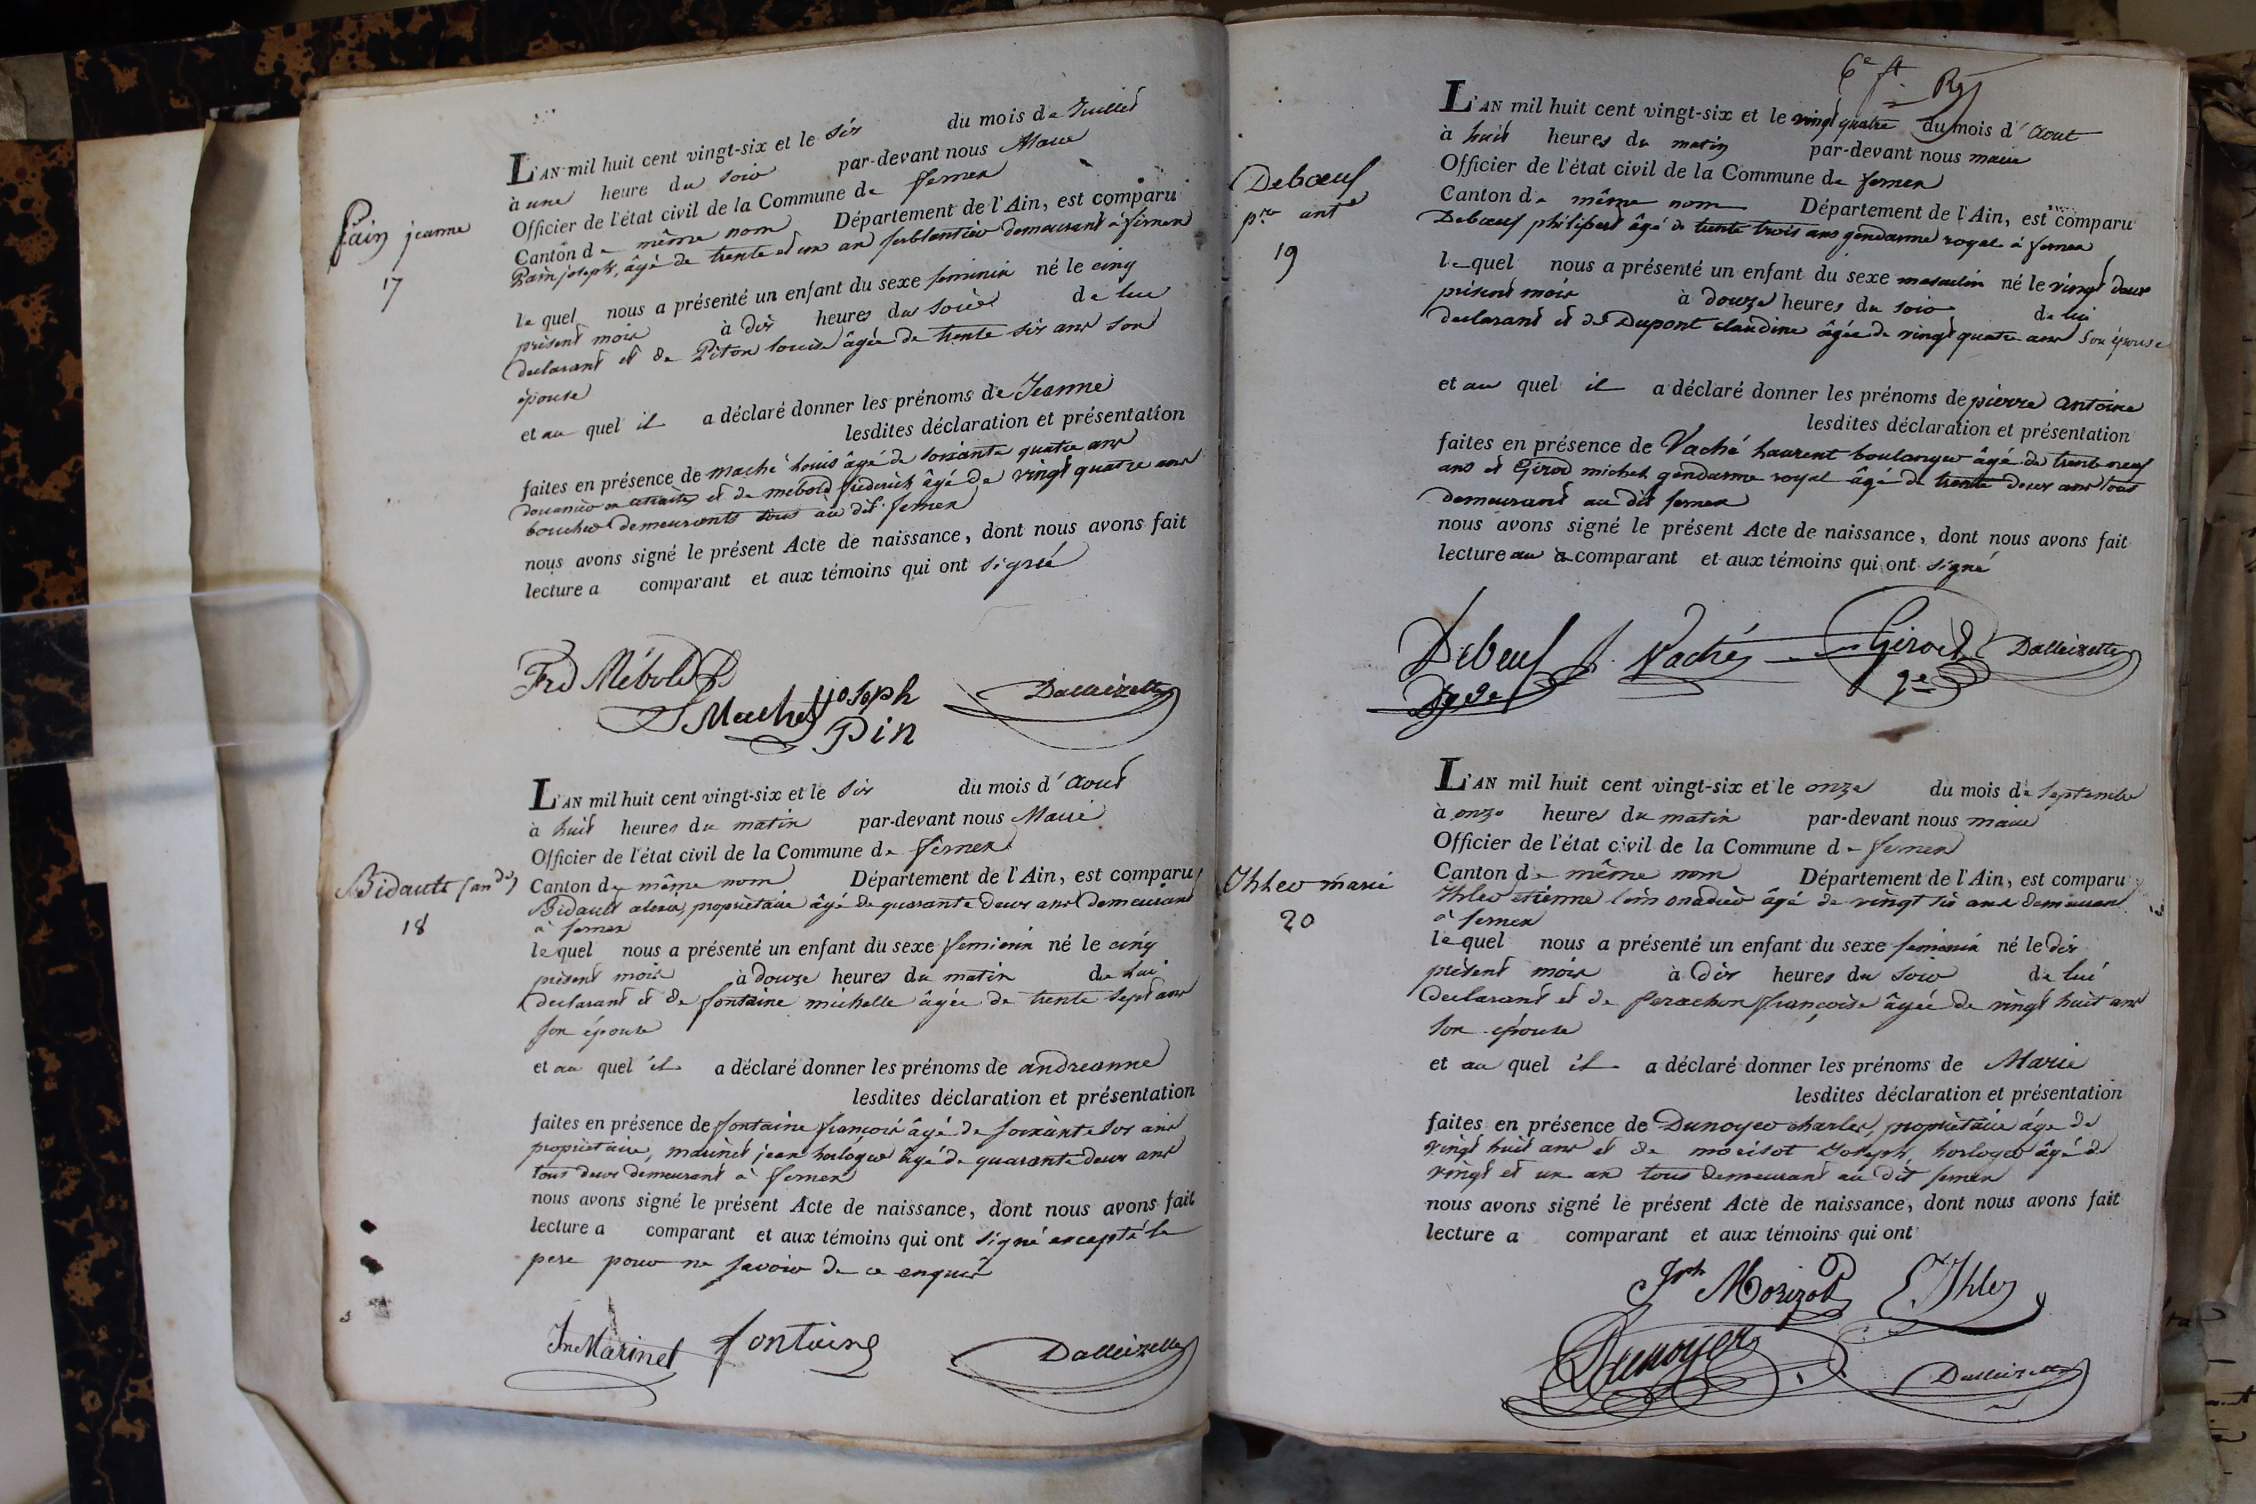 Pain jeanne
17
L'AN mil huit cent vingt-six et le six du mois de Juillet
à une heure du soir par-devant nous Maire
Officier de l'état civil de la Commune de ferney
Canton de même nom Département de l'Ain, est comparu
Pain joseph, âgé de trente et un an ferblantier demeurant à ferney
lequel nous a présenté un enfant du sexe feminin né le cinq
présent mois à dix heures du soir de lui
declarant et de Piton louise âgée de trente six ans son
épouse
et au quel il a déclaré donner les prénoms de Jeanne
lesdites déclaration et présentation
faites en présence de maché Louis âgé de soixante quatre ans
douanier en retraite et de mebold frederick âgé de vingt quatre ans
boucher demeurants tous au dit ferney
nous avons signé le présent Acte de naissance, dont nous avons fait
lecture a comparant et aux témoins qui ont signé
Frd Mébold
L Machet Joseph
Pin
Dalleizette
Bidault (andé)
18
L'AN mil huit cent vingt-six et le six du mois d'Aout
à huit heures du matin par-devant nous Maire
Officier de l'état civil de la Commune de ferney
Canton de même nom Département de l'Ain, est comparu
Bidault alexis, propriétaire âgé de quarante deux ans demeurant
à ferney
lequel nous a présenté un enfant du sexe feminin né le cinq
présent mois à douze heures du matin de lui
declarant et de fontaine michelle âgée de trente sept ans
son épouse
et au quel il a déclaré donner les prénoms de andreanne
lesdites déclaration et présentation
faites en présence de fontaine françois âgé de soixante six ans
propriétaire, marinet jean horloger âgé de quarante deux ans
tous deux demeurant à ferney
nous avons signé le présent Acte de naissance, dont nous avons fait
lecture a comparant et aux témoins qui ont signé excepté le
pere pour ne savoir de ce enquis
Jn Marinet fontaine Dalleizette
6e ft Rg
Debœuf
pre ante
19
L'AN mil huit cent vingt-six et le vingt quatre du mois d'Aout
à huit heures du matin par-devant nous maire
Officier de l'état civil de la Commune de ferney
Canton de même nom Département de l'Ain, est comparu
Debœuf philipert âgé de trente trois ans gendarme royal à ferney
lequel nous a présenté un enfant du sexe masculin né le vingt deux
présent mois à douze heures du soir de lui
declarant et de Dupont claudine âgée de vingt quatre ans son épouse
et au quel il a déclaré donner les prénoms de pierre antoine
lesdites déclaration et présentation
faites en présence de Vaché Laurent boulanger âgé de trente neuf
ans et Girod michel gendarme royal âgé de trente deux ans tous
demeurant au dit ferney
nous avons signé le présent Acte de naissance, dont nous avons fait
lecture au comparant et aux témoins qui ont signé
Debeuf Vaché Girod Dalleizette
L'AN mil huit cent vingt-six et le onze du mois de septembre
à onze heures du matin par-devant nous maire
Officier de l'état civil de la Commune de ferney
Ihler marie
20
Canton de même nom Département de l'Ain, est comparu
Ihler etienne limonadier âgé de vingt six ans demeurant
à ferney
lequel nous a présenté un enfant du sexe feminin né le dix
présent mois à dix heures du soir de lui
declarant et de perachon françoise âgée de vingt huit ans
son épouse
et au quel il a déclaré donner les prénoms de Marie
lesdites déclaration et présentation
faites en présence de Dunoyer charles, propriétaire âgé de
vingt huit ans et de morisot Joseph, horloger âgé de
vingt et un an tous demeurant au dit ferney
nous avons signé le présent Acte de naissance, dont nous avons fait
lecture a comparant et aux témoins qui ont
Jph Morizot E. Ihler
Dunoyer Dalleizette